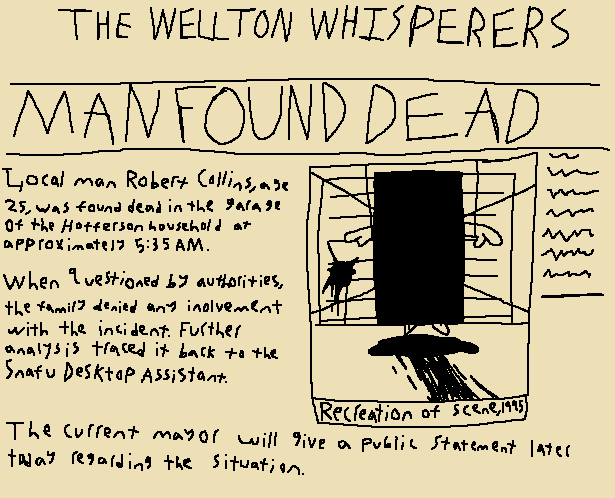 THE WELLTON WHISPERERS
MAN FOUND DEAD
Local man Robert Collins, age
25, was found dead in the garage
of the Hofferson household at
approximately 5:35 AM.
When questioned by authorities,
the family denied any inolvement
with the incident. Further
analysis traced it back to the
Snafu Desktop Assistant.
Recreation of scene, 1995
The current mayor will give a public statement later
today regarding the situation.